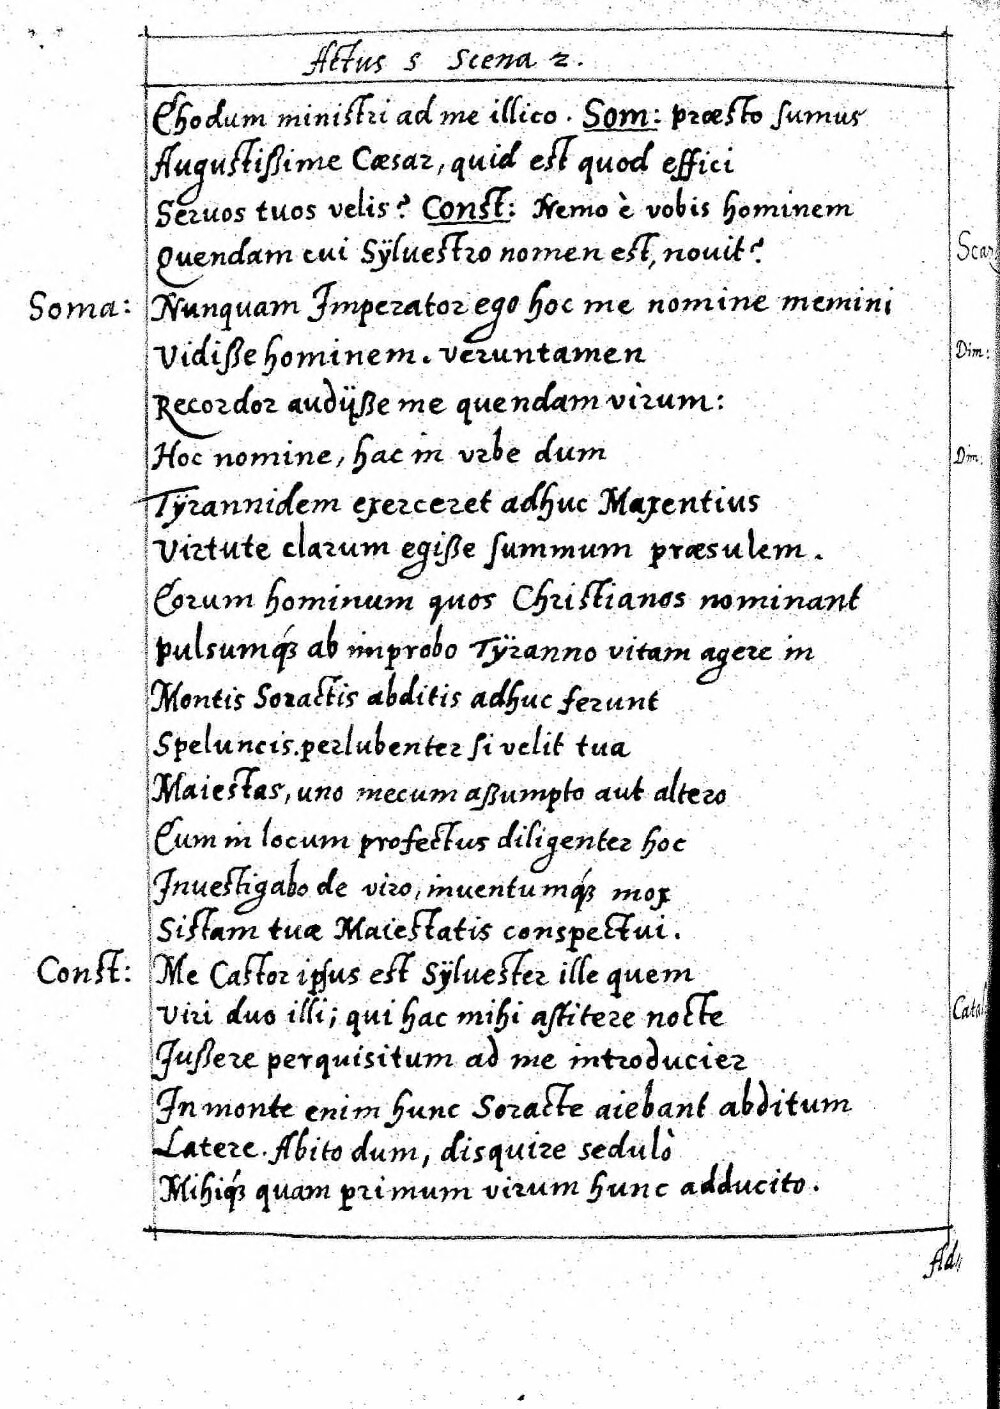 Actus 5 Scena 2.
Ehodum ministri ad me illico. Som: præsto sumus
Augustißime Cæsar, quid est quod effici
Seruos tuos velis? Const: Nemo è vobis hominem
Quendam cui Sÿluestro nomen est, nouit?
Soma: Nunquam Imperator ego hoc me nomine memini
Vidiße hominem. veruntamen
Recordor audijße me quendam virum:
Hoc nomine, hac in vrbe dum
Tÿrannidem exerceret adhuc Maxentius
Virtute clarum egiße summum præsulem.
Eorum hominum quos Christianos nominant
Pulsumq́ꝫ ab improbo Tÿranno vitam agere in
Montis Soractis abditis adhuc ferunt
Speluncis. perlubenter si velit tua
Maiestas, uno mecum aßumpto aut altero
Eum in locum profectus diligenter hoc
Inuestigabo de viro, inuentumq́ꝫ mox
Sistam tuæ Maiestatis conspectui.
Const: Me Castor ipsus est Sÿluester ille quem
Viri duo illi; qui hac mihi astitere nocte
Jußere perquisitum ad me introducier
In monte enim hunc Soracte aiebant abditum
Latere. Abito dum, disquire sedulò
Mihiq́ꝫ quam primum virum hunc adducito.
Dim:
Dim: